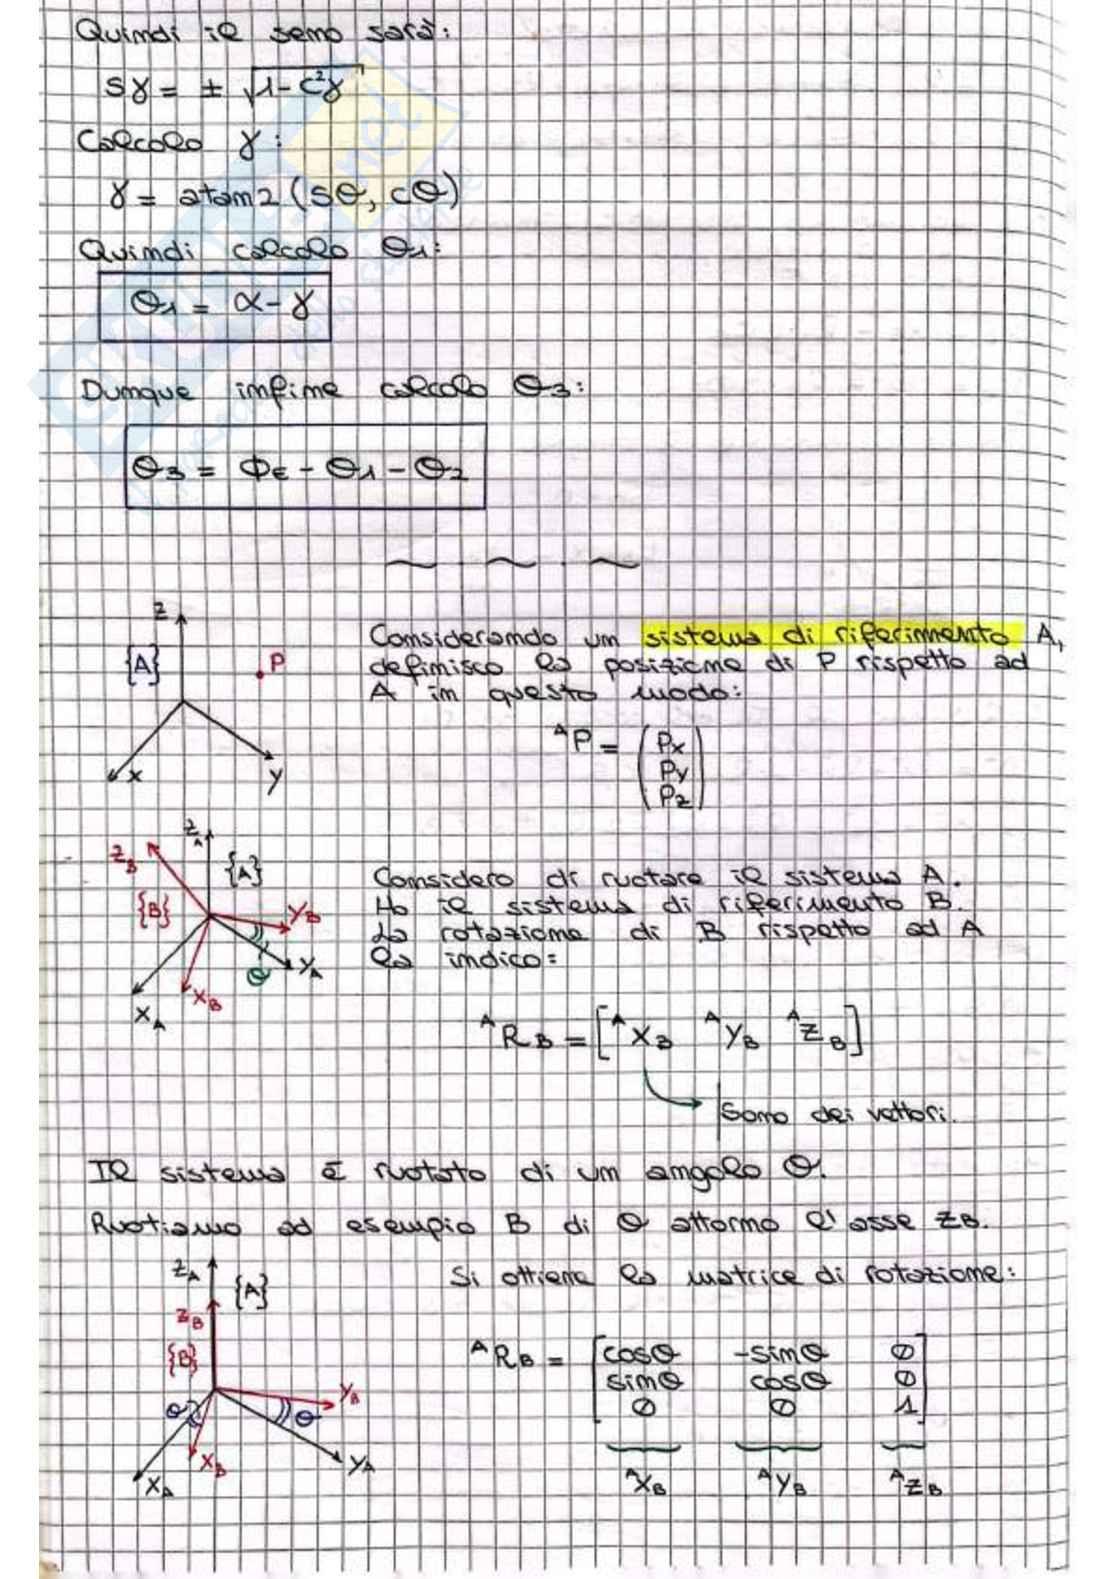 Quindi il seno sarà:
sγ = ± √1-c²γ
Calcolo γ:
γ = atan2 (sθ, cθ)
Quindi calcolo θ1:
θ1 = α-γ
Dunque infine calcolo θ3:
θ3 = ΦE - θ1 - θ2
Z
{A}
P
X
Y
Considerando un sistema di riferimento A,
definisco la posizione di P rispetto ad
A in questo modo:
ᴬP = (Px
Py
Pz)
ZB
ZA
{A}
{B}
YB
θ
YA
XB
XA
Considero di ruotare il sistema A.
Ho il sistema di riferimento B.
La rotazione di B rispetto ad A
la indico:
ᴬRB = [ᴬXB ᴬYB ᴬZB]
Sono dei vettori.
Il sistema è ruotato di un angolo θ.
Ruotiamo ad esempio B di θ attorno l'asse ZB.
ZA
{A}
ZB
{B}
YB
θ
θ
XB
YA
XA
Si ottiene la matrice di rotazione:
ᴬRB = [cosθ -sinθ 0
sinθ cosθ 0
0 0 1]
ᴬXB ᴬYB ᴬZB